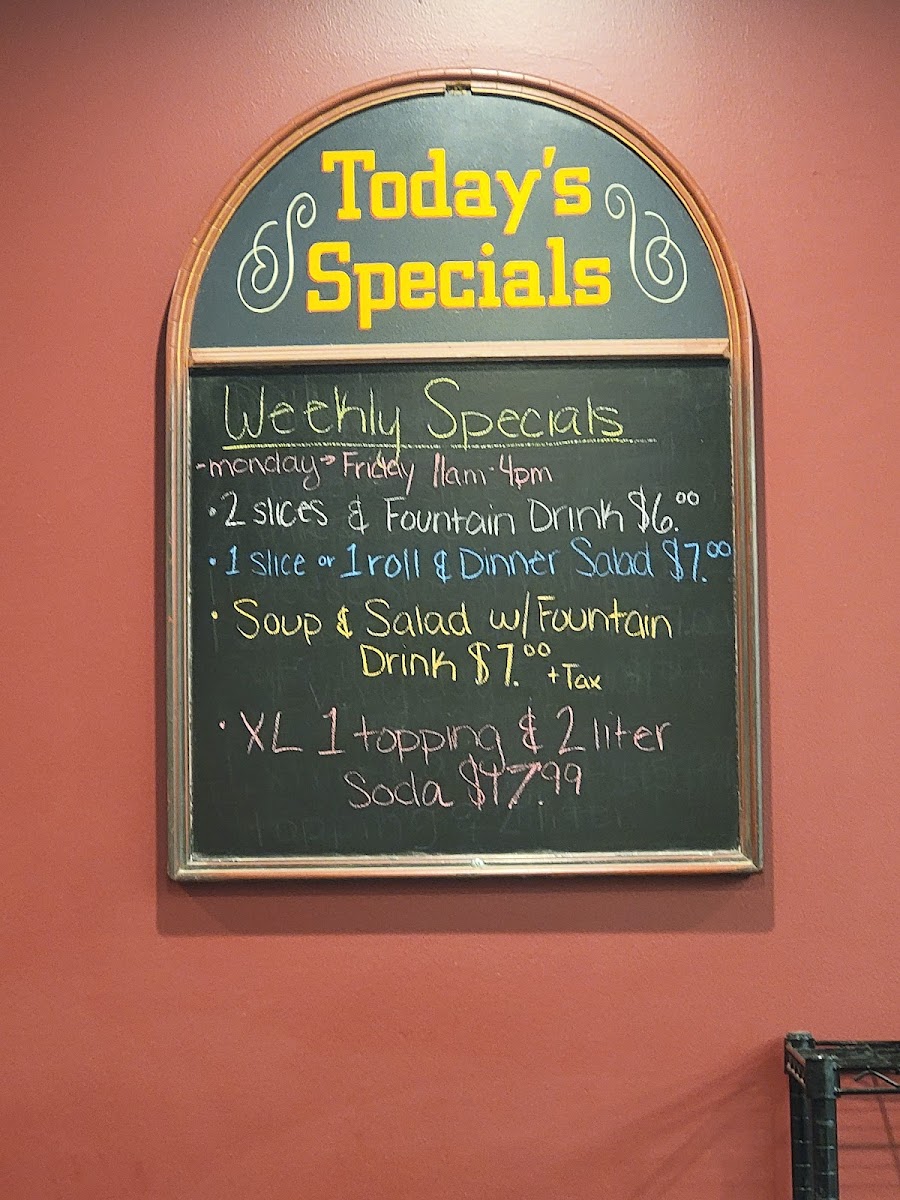 Today's
Specials
Weekly Specials
-monday → Friday 11am-4pm
• 2 slices & Fountain Drink $6.00
• 1 slice or 1 roll & Dinner Salad $7.00
• Soup & Salad w/ Fountain
Drink $7.00 + Tax
• XL 1 topping & 2 liter
Soda $17.99